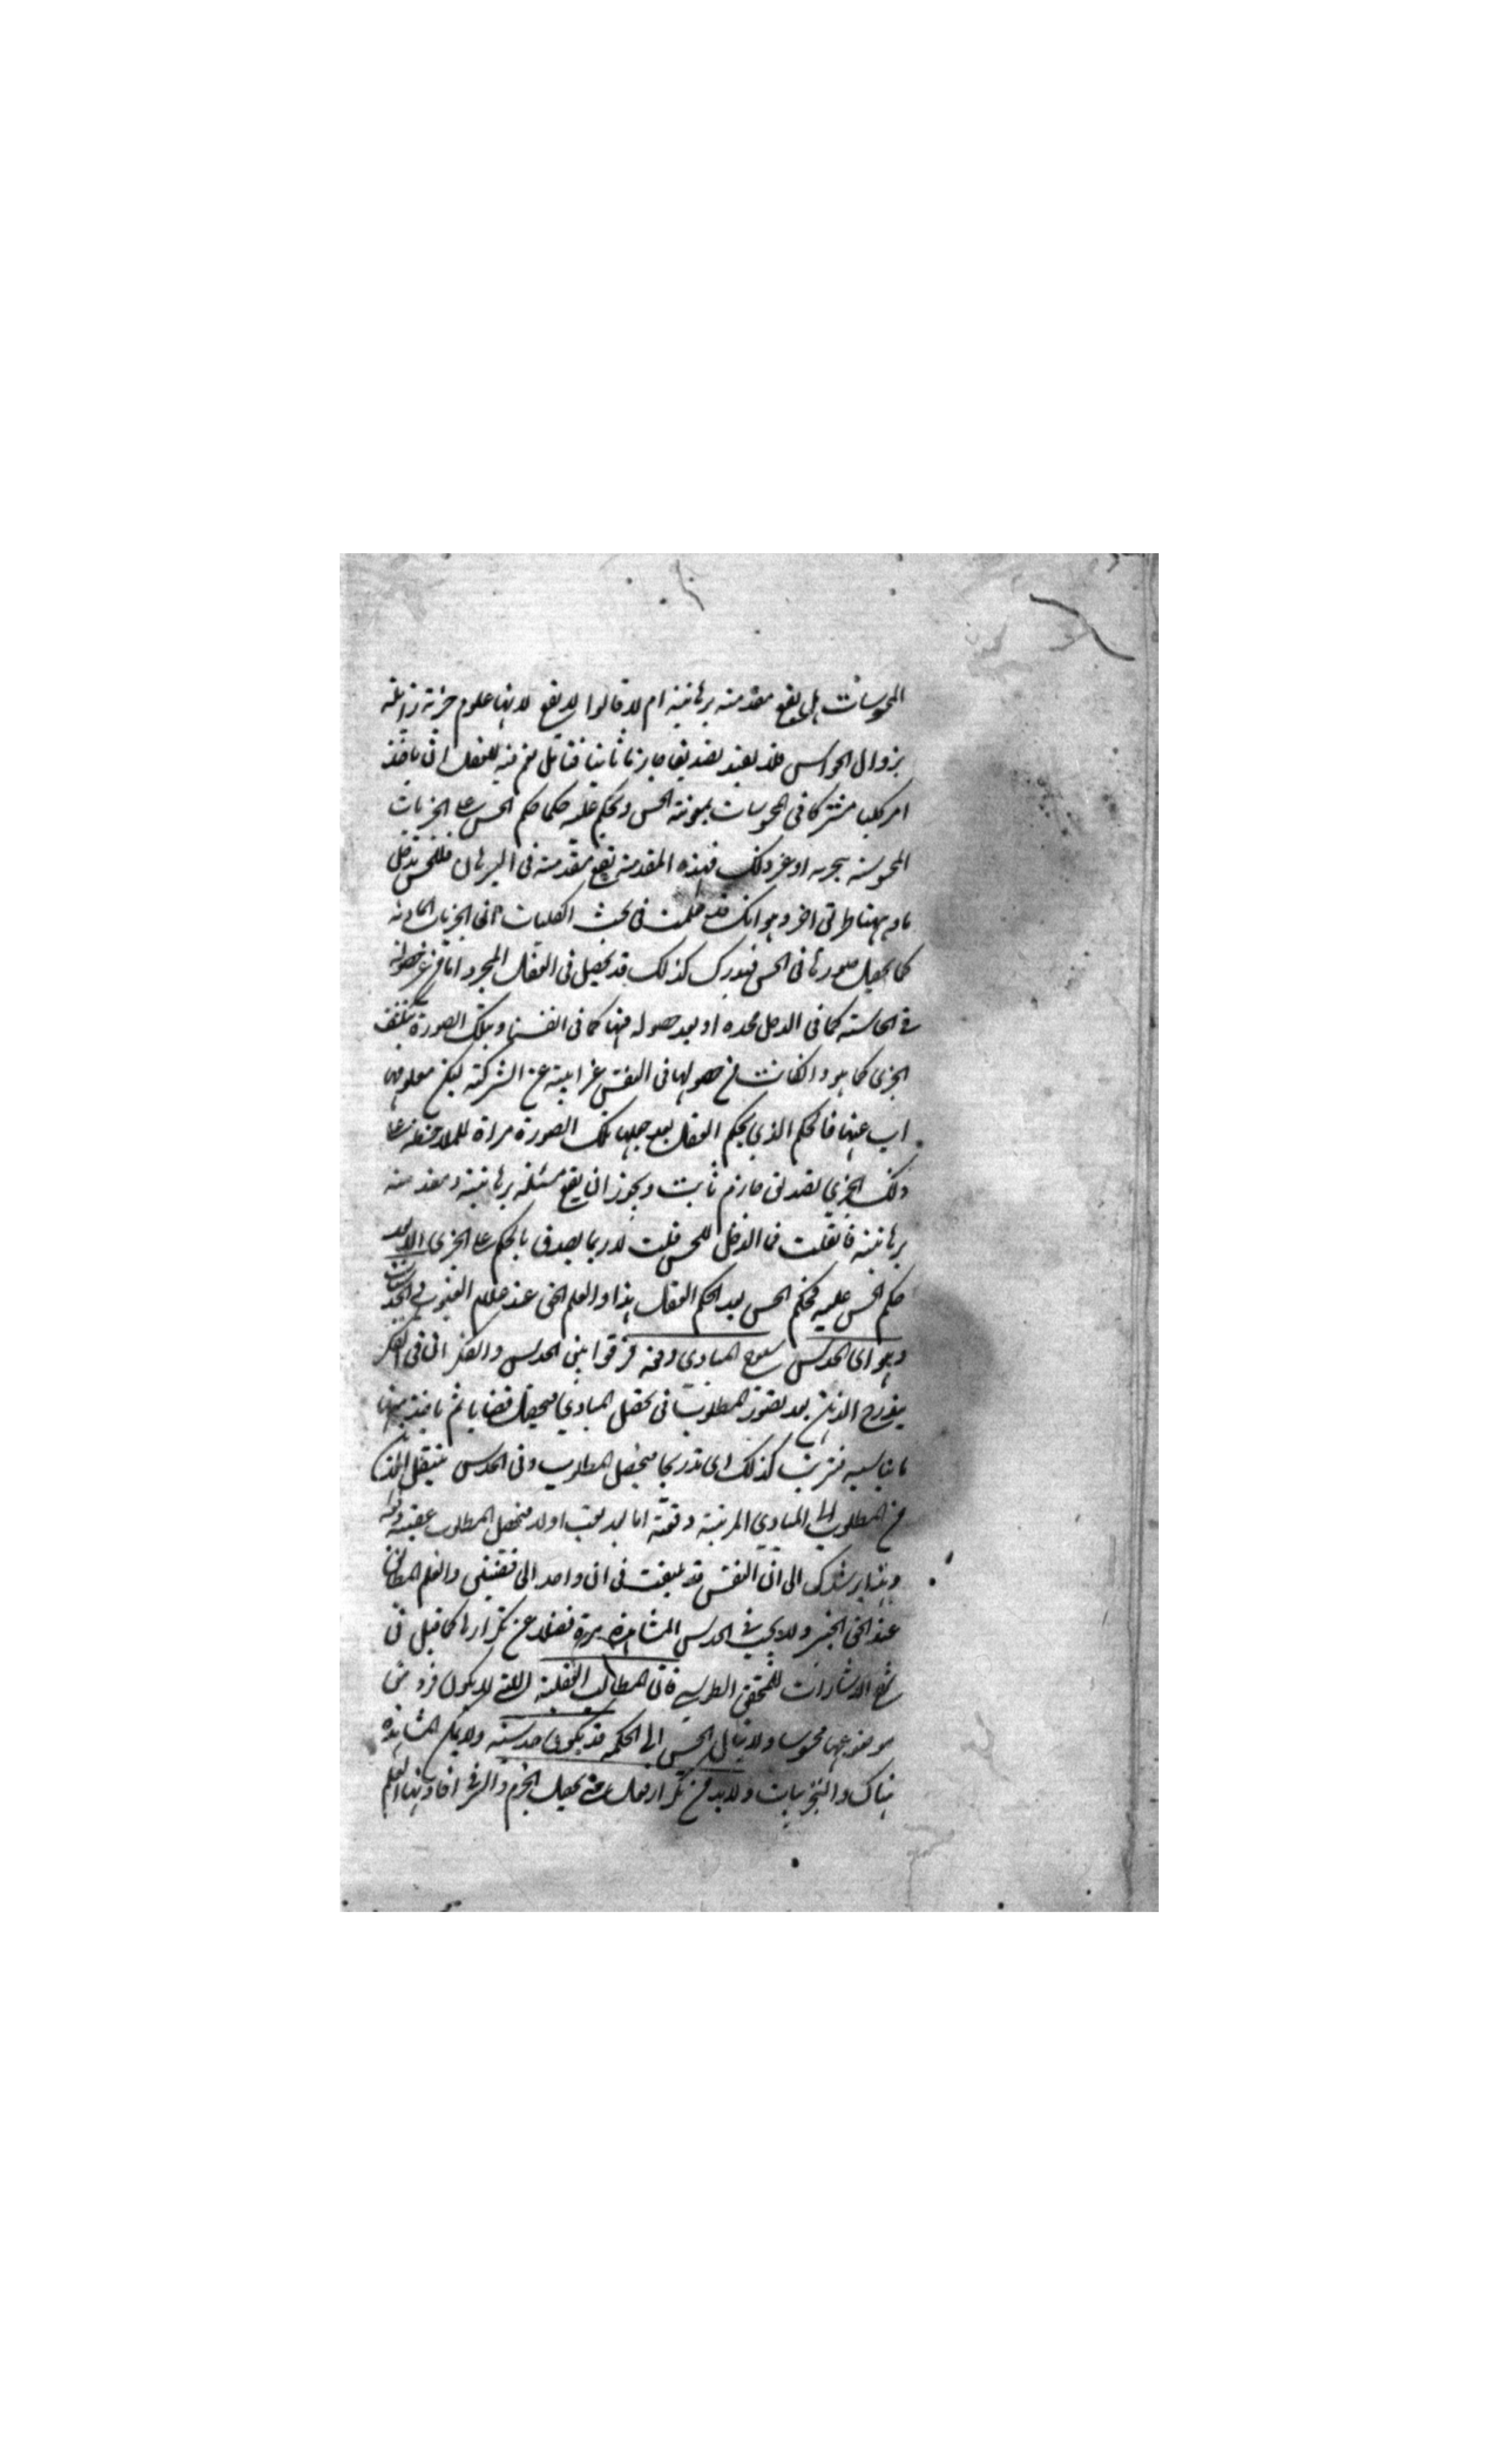 المحسوسات هل يقع مقدمته برهانية ام لا قالوا لا يقع لانها علوم جزئية زايلة
بزوال الحواس فلا يفيد تصديقا جازما ثابتا فتامل نعم فيه للعقل ان ياخذ
امر كليا مشتركا فى المحسوسات بمونة الحس ويحكم عليه حكما حكم الحس على الجزئيات
المحسوسة بتجربه او غير ذلك فهذه المقدمة تقع مقدمة فى البرهان فللحس دخل
ما وههنا طريق اخر وهو انك قد علمت فى بحث الكليات ان الجزئيات المادية
كما يحصل صورتها فى الحس فيدرك كذلك قد يحصل فى العقل المجرد اما من غير حصوله
فى الحاسة كما فى الاول مجده او بعد حصوله فيها كما فى انفسنا وبتلك الصورة ينكشف
الجزئى كما هو وان كانت من حصولها فى النفس غير ابية عن الشركة لكن معلومها
اب عنها فالحكم الذي يحكم العقل بعد جعلها تلك الصورة مراة للملاحظة على
ذلك الجزئي تصديق جازم ثابت ويجوز ان يقع مسئلة برهانية ومقدمته
برهانية فان قلت فما الدخل للحس قلت لا ربما يصدق بالحكم على الجزئى الا بعد
حكم الحس عليه فحكم الحس بعد لحكم العقل هذا والعلم الحق عند علام الغيوب والحدسيات
وهو اى الحدس سنوح المبادي دفعة فرقوا بين الحدس والفكر ان فى الفكر
يتدرج الذهن بعد تصور المطلوب فى تحصل المبادي فيحصل قضايا ثم ياخذ منها
ما يناسبه فترتب كذلك اى تدريجا فيحصل المطلوب وفى الحدس ينتقل الذهن
من المطلوب الى المبادي المرتبة دفعة اما بعد تعب او لا فيحصل المطلوب عقيبه دفعة
وهذا يرشدك الى ان النفس قد يلتفت فى ان واحد الى قضيتين والعلم المطابق
عند الحق الخبير ولا يجب فى الحدس المشاهدة مرة فضلا عن تكرارها كما قيل فى
شرح الاشارات للمحقق الطوسي فان المطالب العقلية التى لا يكون فرد من
موضوعها محسوسا ولا ينال الحس الى الحكم قد يكون حدسية ولا يمكن المشاهدة
هناك والتجربيات ولا بد من تكرار فعل حتى يحصل الجزم والسر فى افادتها العلم